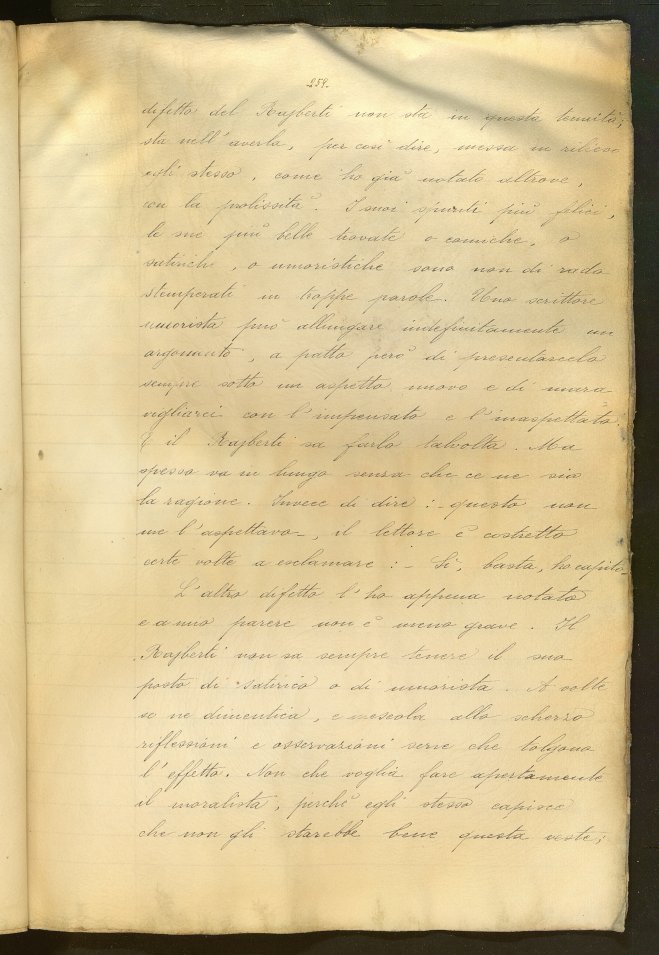 259.
difetto del Rajberti non sta in questa tenuità;
sta nell'averla, per così dire, messa in rilievo
egli stesso, come ho già notato altrove,
con la prolissità. I suoi spunti più felici,
le sue più belle trovate o comiche, o
satiriche, o umoristiche sono non di rado
stemperati in troppe parole. Uno scrittore
umorista può allungare indefinitamente un
argomento, a patto però di presentarcelo
sempre sotto un aspetto nuovo e di mara
vigliarci con l'impensato e l'inaspettato.
E il Rajberti sa farlo talvolta. Ma
spesso va in lungo senza che ce ne sia
la ragione. Invece di dire: - questo non
me l'aspettavo -, il lettore è costretto
certe volte a esclamare: - Sì, basta, ho capito -
L'altro difetto l'ho appena notato
e a mio parere non è meno grave. Il
Rajberti non sa sempre tenere il suo
posto di satirico o di umorista. A volte
se ne dimentica, e mescola allo scherzo
riflessioni e osservazioni serie che tolgono
l'effetto. Non che voglia fare apertamente
il moralista, perchè egli stesso capisce
che non gli starebbe bene questa veste;